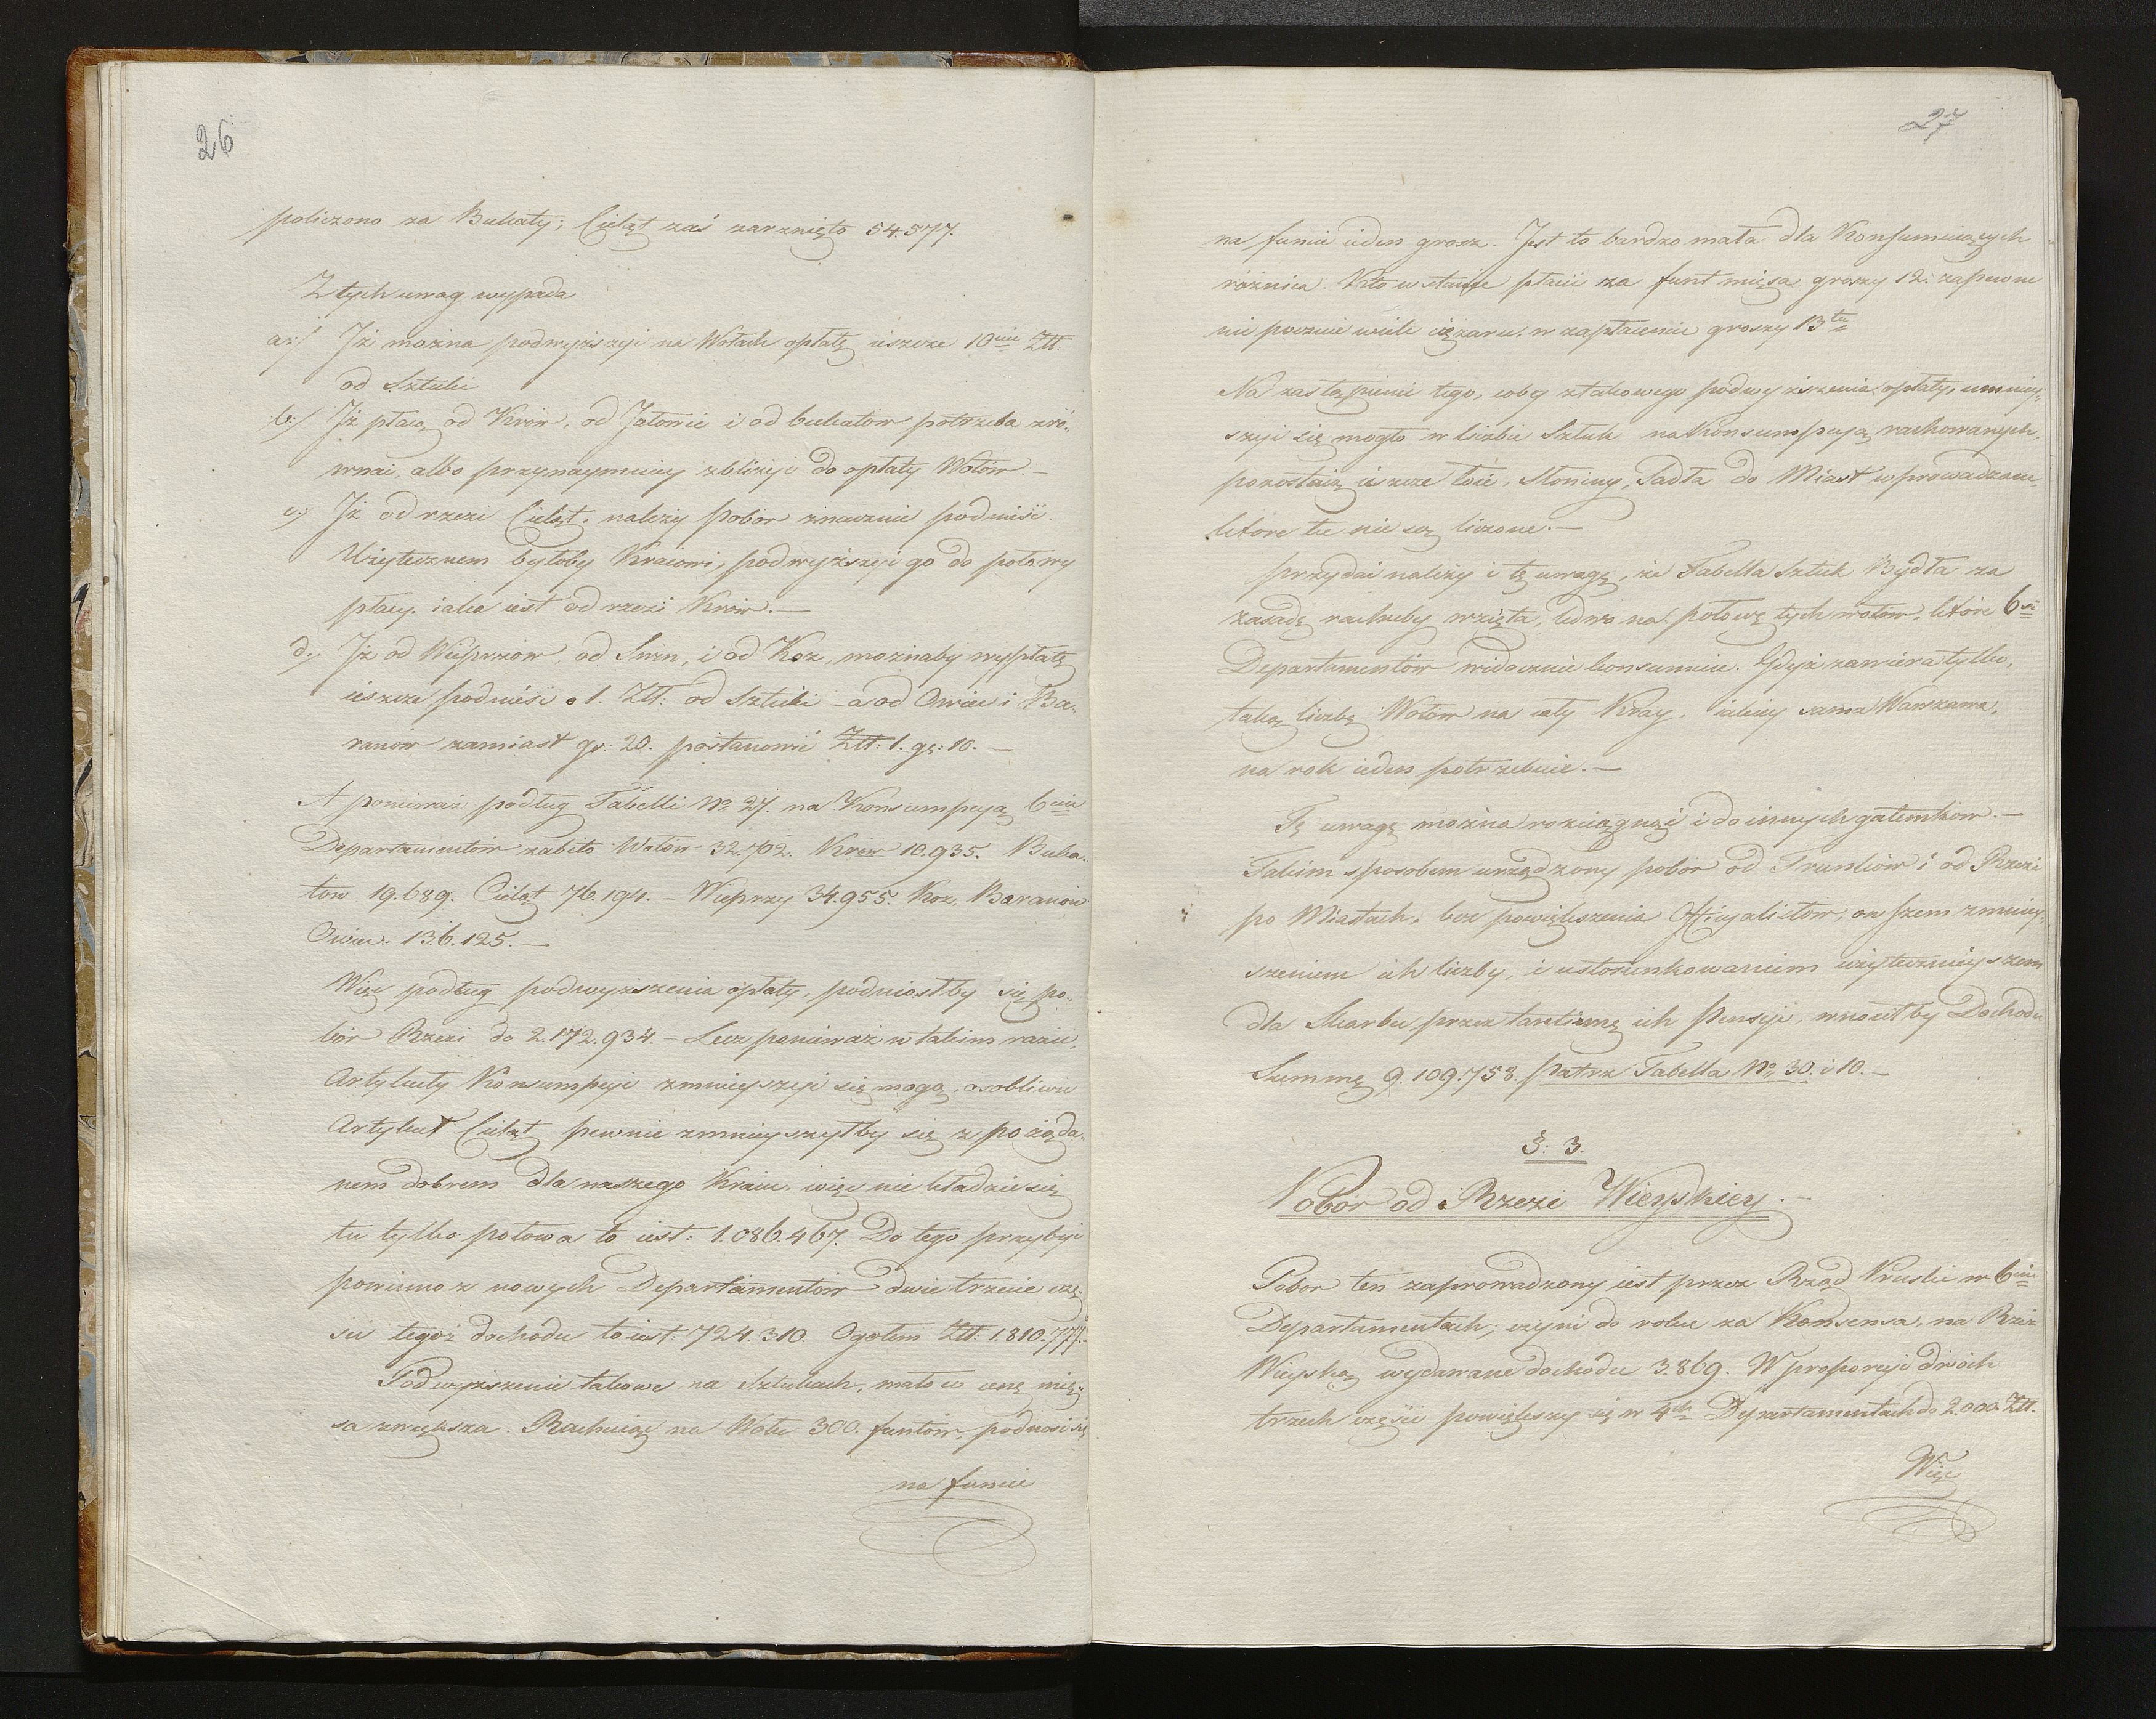 26
policzono za Bukaty; Cieląt zaś zarznięto 54.577.
Z tych uwag wypada
a:/ Iż można podwyższyć na Wołach opłatę ieszcze 10ciu Złł.
od Sztuki
b:/ Iż płacę od Krów, od Jałowic i od bukatów potrzeba zró-
wnać albo przynaymniey zbliżyć do opłaty Wołów. —
c:/ Iż od rzezi Cieląt, należy pobor znacznie podnieść.
Użytecznem byłoby Kraiowi, podwyższyć go do połowy
płacy iaka iest od rzezi Krów. —
d:/ Iż od Wieprzów, od Swin, i od Koz, możnaby wypłatę
ieszcze podnieść o 1. Złł: od Sztuki — a od Owiec i Ba-
ranów zamiast gr: 20. postanowić Złł: 1. gr: 10. —
A ponieważ podług Tabelli No 27. na Konsumpcyą 6ciu
Departamentów zabito Wołów 32.702. Krów 10.935. Buka-
tów 19.689. Cieląt 76.194. — Wieprzy 34.955. Koz, Baranów
Owiec. 136.125. —
Więc podług podwyższenia opłaty, podniosłby się po-
bór Rzezi do 2.172.934. — Lecz ponieważ w takim razie,
Artykuły Konsumpcyi zmnieyszyć się mogą, osobliwie
Artykuł Cieląt pewnie zmnieyszyłby się z pożąda-
nem dobrem dla naszego Kraiu, więc nie kładzie się
tu tylko połowa to iest: 1.086.467. Do tego przybyć
powinno z nowych Departamentów dwie trzecie czę-
ści tegoż dochodu to iest: 724.310. Ogołem Złł. 1.810.777.
Podwyższenie takowe na Sztukach, mało w cenę mię-
sa zwiększa. Rachuiąc na Wołu 300. funtów, podnosi się
na funcie
27
na funcie ieden grosz. Jest to bardzo mała dla Konsumuiących
różnica. Kto w stanie płacić za funt mięsa groszy 12. zapewne
nie poczuie wiele ciężaru, w zapłaceniu groszy 13tu
Na zastąpienie tego, coby z takowego podwyższenia opłaty, umniey-
szyć się mogło w liczbie Sztuk na Konsumpcyą rachowanych,
pozostaią ieszcze Łoie, Słoniny, Sadła do Miast wprowadzane,
które tu nie są liczone. —
przydać należy i tę uwagę, że Tabella Sztuk Bydła za
zasadę rachuby wzięta, ledwo na połowę tych wołów, które 6ść
Departamentów widocznie konsumuie. Gdyż zawiera tylko,
taką liczbę Wołów na cały Kray, iakiey sama Warszawa,
na rok ieden potrzebuie. —
Tę uwagę można rozciągnąć i do innych gatunków. —
Takim sposobem urządzony pobór od Trunków i od Rzezi
po Miastach, bez powiększenia Officyalistów, owszem zmniey-
szeniem ich liczby, i ustosunkowaniem użytecznieyszem
dla Skarbu przez tantiemę ich Pensyi, wnosiłby Dochodu
Summę 9.109.758. patrz Tabella No 30. i 10. —
§: 3.
Pobór od Rzezi Wieyskiey. —
Pobor ten zaprowadzony iest przez Rząd Pruski w 6ciu
Departamentach; czyni do roku za Konsensa, na Rzeź
Wieyską wydawane dochodu 3.869. W proporcyi dwóch
trzech części powiększy się w 4ch Departamentach do 2.000 Złł.
Więc